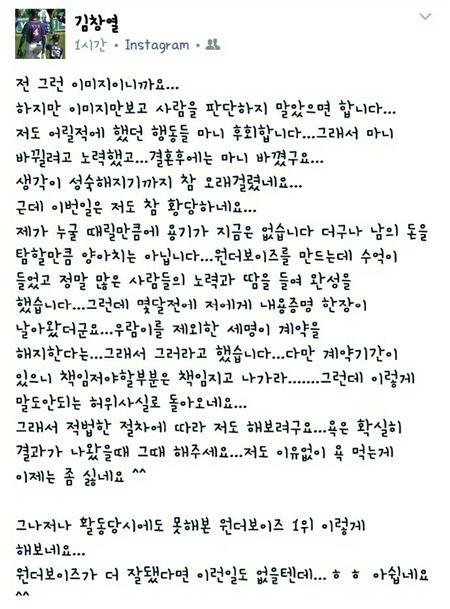 김창열
1시간 • Instagram •
전 그런 이미지이니까요...
하지만 이미지만보고 사람을 판단하지 말았으면 합니다...
저도 어릴적에 했던 행동들 마니 후회합니다...그래서 마니
바뀔려고 노력했고...결혼후에는 마니 바꼈구요...
생각이 성숙해지기까지 참 오래걸렸네요...
근데 이번일은 저도 참 황당하네요...
제가 누굴 때릴만큼에 용기가 지금은 없습니다 더구나 남의 돈을
탐할만큼 양아치는 아닙니다...원더보이즈를 만드는데 수억이
들었고 정말 많은 사람들의 노력과 땀을 들여 완성을
했습니다...그런데 몇달전에 저에게 내용증명 한장이
날아왔더군요...우람이를 제외한 세명이 계약을
해지한다는...그래서 그러라고 했습니다...다만 계약기간이
있으니 책임저야할부분은 책임지고 나가라.......그런데 이렇게
말도안되는 허위사실로 돌아오네요...
그래서 적법한 절차에 따라 저도 해보려구요...욕은 확실히
결과가 나왔을때 그때 해주세요...저도 이유없이 욕 먹는게
이제는 좀 싫네요 ^^
그나저나 활동당시에도 못해본 원더보이즈 1위 이렇게
해보네요...
원더보이즈가 더 잘됐다면 이런일도 없을텐데...ㅎㅎ 아쉽네요
^^